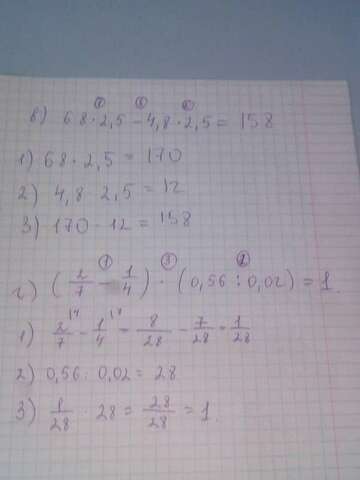 в) 68 · 2,5 - 4,8 · 2,5 = 158
1) 68 · 2,5 = 170
2) 4,8 · 2,5 = 12
3) 170 - 12 = 158
г) (2/7 - 1/4) · (0,56 : 0,02) = 1
1) 2/7 - 1/4 = 8/28 - 7/28 = 1/28
2) 0,56 : 0,02 = 28
3) 1/28 · 28 = 28/28 = 1